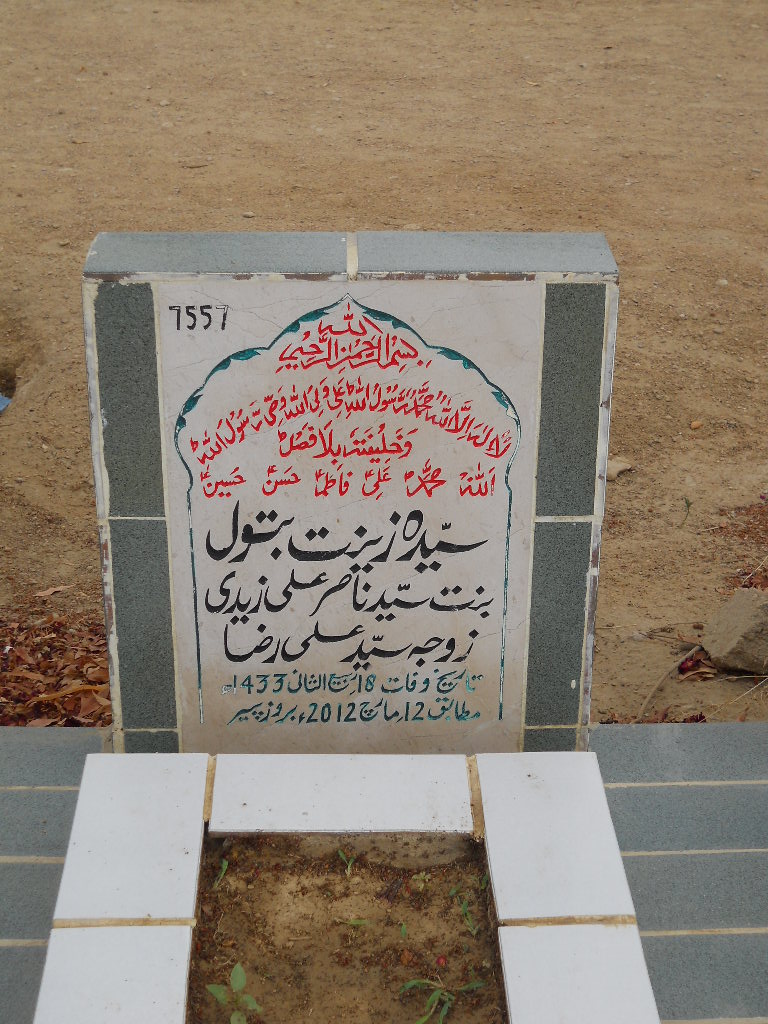 7557
بسم اللہ الرحمن الرحیم
لَا اِلٰہَ اِلَّا اللہُ مُحَمَّدٌ رَّسُوْلُ اللہِ عَلِیٌّ وَلِیُّ اللہِ وَصِیُّ رَسُوْلِ اللہِ
وَخَلِیْفَتُہٗ بِلَا فَصْلٍ
اَللہ محمدؐ علیؑ فاطمہؑ حسنؑ حسینؑ
سیّدہ زینت بتول
بنت سیّد ناصر علی زیدی
زوجہ سیّد علی رضا
تاریخ وفات 18 ربیع الثانی 1433ھ
مطابق 12 مارچ 2012ء بروز پیر